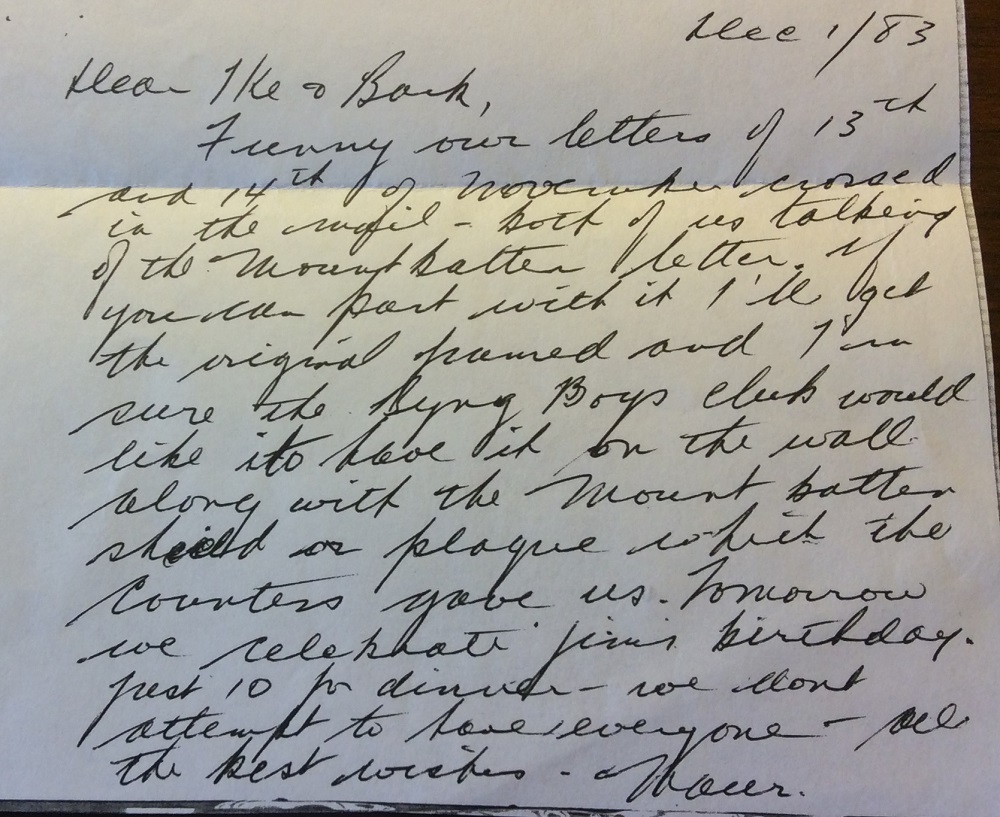 Dec 1/83
Dear Ike & Barb,
Funny our letters of 13th
and 14th of November crossed
in the mail - both of us talking
of the Mountbatten letter. If
you can part with it I'll get
the original framed and I'm
sure the Byng Boys club would
like to have it on the wall
along with the Mount batten
shield or plaque which the
Counters gave us. Tomorrow
we celebrate Jim's birthday.
just 10 for dinner - we dont
attempt to have everyone - all
the best wishes -